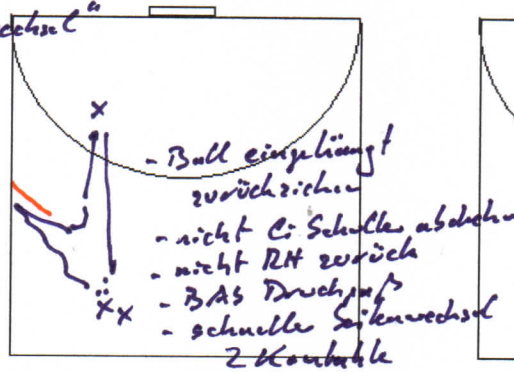 echsel"
X
- Ball eingehängt
zurückziehen
- nicht li Schulter abdrehen
- nicht RH zurück
- BAS Druckpaß
X X
- schneller Seitenwechsel
2 Kontakte